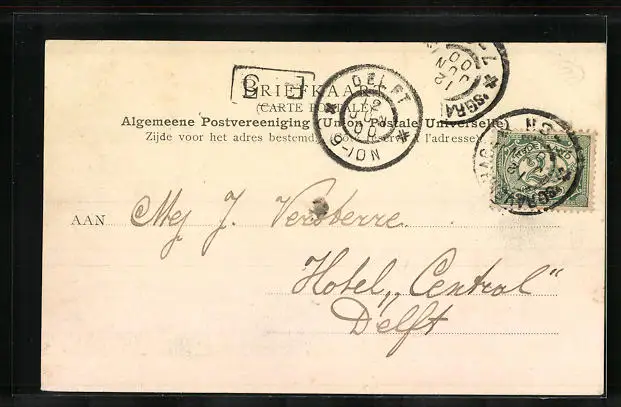 BRIEFKAART
(CARTE POSTALE)
Algemeene Postvereeniging (Union Postale Universelle)
Zijde voor het adres bestemd. (Côté réservé à l'adresse)
DELFT
12
JUN
00
NOI-6
12
JUN
00
'SGRA
AAN Mej J. Versterre.
Hotel „Central"
Delft